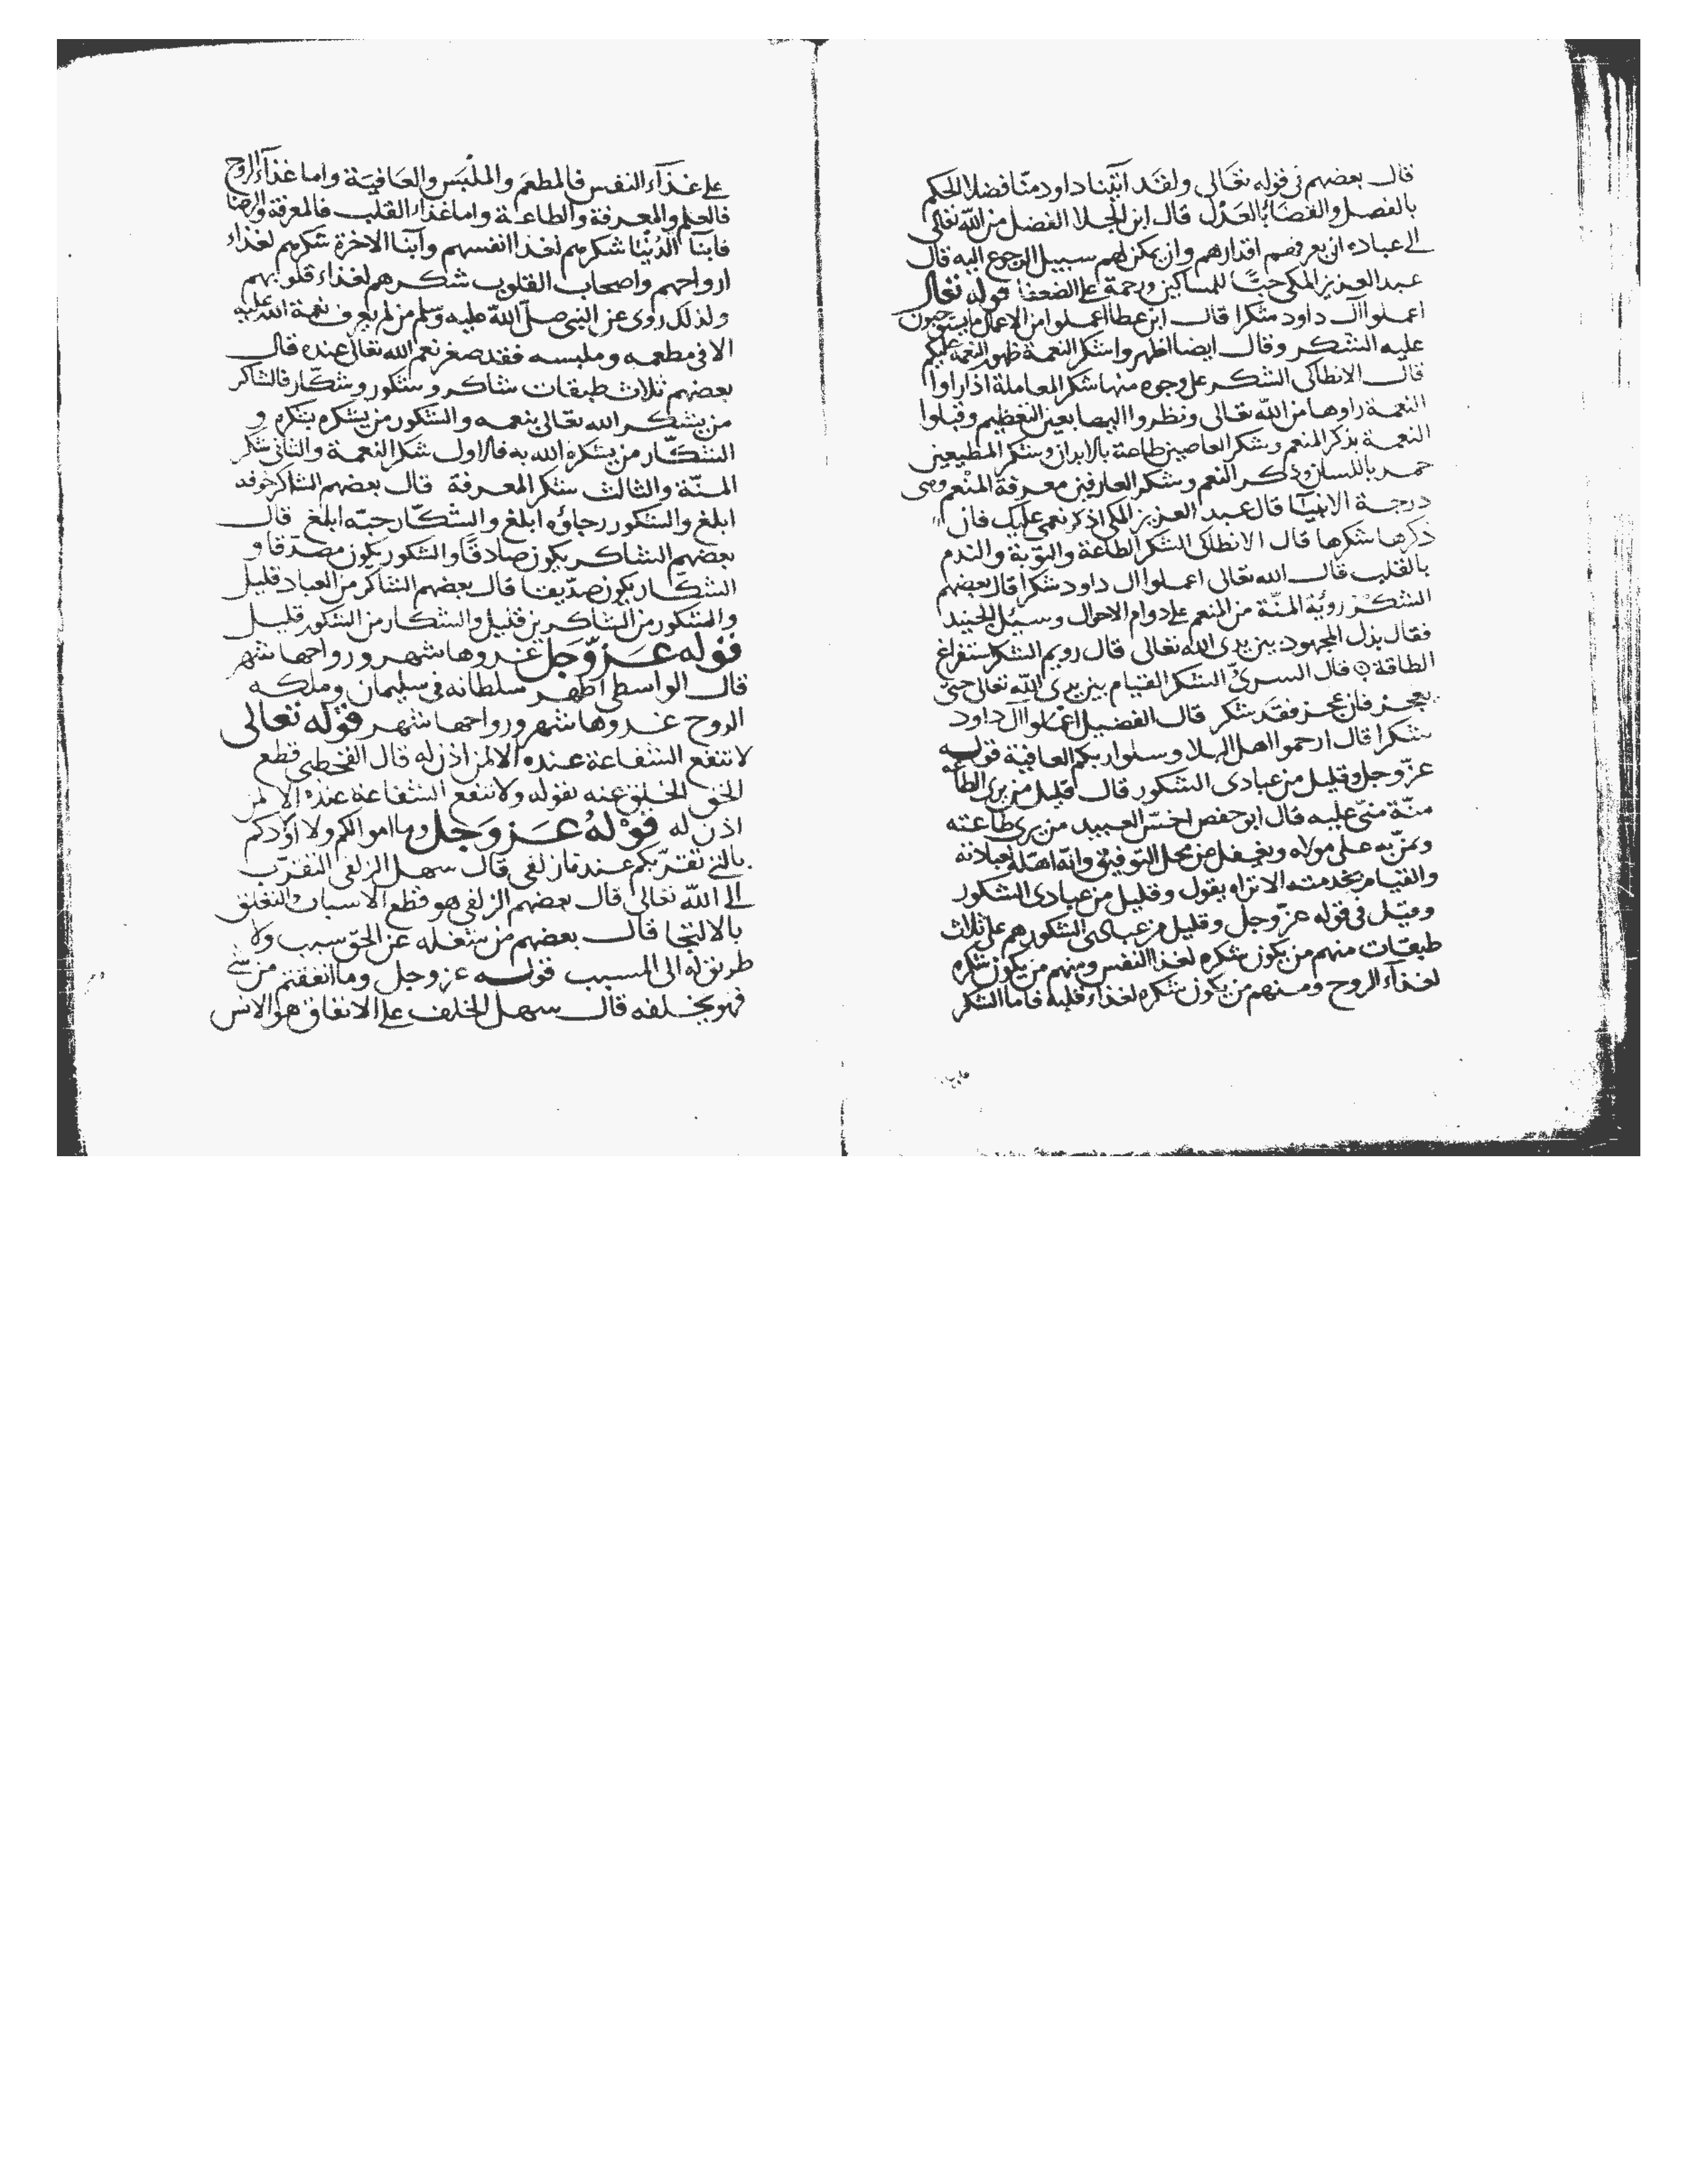 قال بعضهم في قوله تعالى ولقد آتينا داود منا فضلا الحكم
بالفصل والقضاء بالعدل قال ابن الجلا الفضل من الله تعالى
الى عباده ان يعرفهم اقدارهم وان يمكن لهم سبيل الرجوع اليه قال
عبد العزيز المكي حبًّا للمساكين ورحمة على الضعفا قوله تعالى
اعملوا آل داود شكرا قال ابن عطا اعملوا من الاعمال ما يستوجبون
عليه الشكر وقال ايضا اظهروا شكر النعمة ظهور النعمة عليكم
قال الانطاكى الشكر على وجوه منها شكر المعاملة اذا راوا
النعمة راوها من الله تعالى ونظروا اليها بعين التعظيم وقبلوا
النعمة بذكر المنعم وشكر العاصين طاعة بالابدان وشكر المطيعين
حمد باللسان وذكر النعم وشكر العارفين معرفة المنعم وهى
درجة الانبيا قال عبد العزيز المكى اذكر نعمى عليك فان
ذكرها شكرها قال الانطاكى الشكر الطاعة والتوبة والندم
بالقلب قال الله تعالى اعملوا ال داود شكرا قال بعضهم
الشكر رؤية المنّة من المنعم على دوام الاحوال وسئل الجنيد
فقال بذل المجهود بين يدى الله تعالى قال رويم الشكر استفراغ
الطاقة قال السرىّ الشكر القيام بين يدى الله تعالى حتى
يعجز فان عجز فقد شكر قال الفضيل اعملوا آل داود
شكرا قال ارحموا اهل البلا وسلوا ربكم العافية قوله
عزّ وجل وقليل من عبادى الشكور قال قليل من يرى الطاعة
منّة منّى عليه قال ابو حفص اخسّ العبيد من يرى طاعته
ويمنّ به على مولاه ويغفل عن محل التوفيق وانّه اهّله لعبادته
والقيام بخدمته الا تراه يقول وقليل من عبادى الشكور
وقيل فى قوله عزّ وجل وقليل من عبادى الشكور هم على ثلاث
طبقات منهم من يكون شكره لغذا النفس ومنهم من يكون شكره
لغذآء الروح ومنهم من يكون شكره لغذاء قلبه فاما الشكر
على غذآء النفس فالمطعم والملبس والعافية واما غذآء الروح
فالعلم والمعرفة والطاعة واما غذاء القلب فالمعرفة والرضا
فابنآ الدنيا شكرهم لغذا انفسهم وابنا الاخرة شكرهم لغذاء
ارواحهم واصحاب القلوب شكرهم لغذاء قلوبهم
ولذلك روى عن النبى صلّى الله عليه وسلم من لم يعرف نعمة الله عليه
الا فى مطعمه وملبسه فقد صغر نعم الله تعالى عنده قال
بعضهم ثلاث طبقات شاكر وشكور وشكّار فالشاكر
من يشكر الله تعالى بنعمه والشكور من يشكره بشكره و
الشكّار من يشكره الله به فالاول شكر النعمة والثانى شكر
المنّة والثالث شكر المعرفة قال بعضهم الشاكر خوفه
ابلغ والشكور رجاؤه ابلغ والشكّار حبّه ابلغ قال
بعضهم الشاكر يكون صادقًا والشكور يكون مصدّقا و
الشكّار يكون صدّيقا قال بعضهم الشاكر من العباد قليل
والشكور من الشاكرين قليل والشكّار من الشكور قليل
قوله عزّ وجل غدوها شهر ورواحها شهر
قال الواسطى اظهر سلطانه فى سليمان وملكه
الروح غدوها شهر ورواحها شهر قوله تعالى
لا تنفع الشفاعة عنده الا لمن اذن له قال القحطبى قطع
الحق الخلق عنه بقوله ولا تنفع الشفاعة عنده الا لمن
اذن له قوله عز وجل وما اموالكم ولا اولادكم
بالتى تقرّبكم عندنا زلفى قال سهل الزلفى التقرّب
الى الله تعالى قال بعضهم الزلفى هو قطع الاسباب والتعلق
بالالتجا قال بعضهم من شغله عن الحق سبب ولا
طريق له الى المسبب قوله عز وجل وما انفقتم من شئ
فهو يخلفه قال سهل الخلف على الانفاق هو الانس